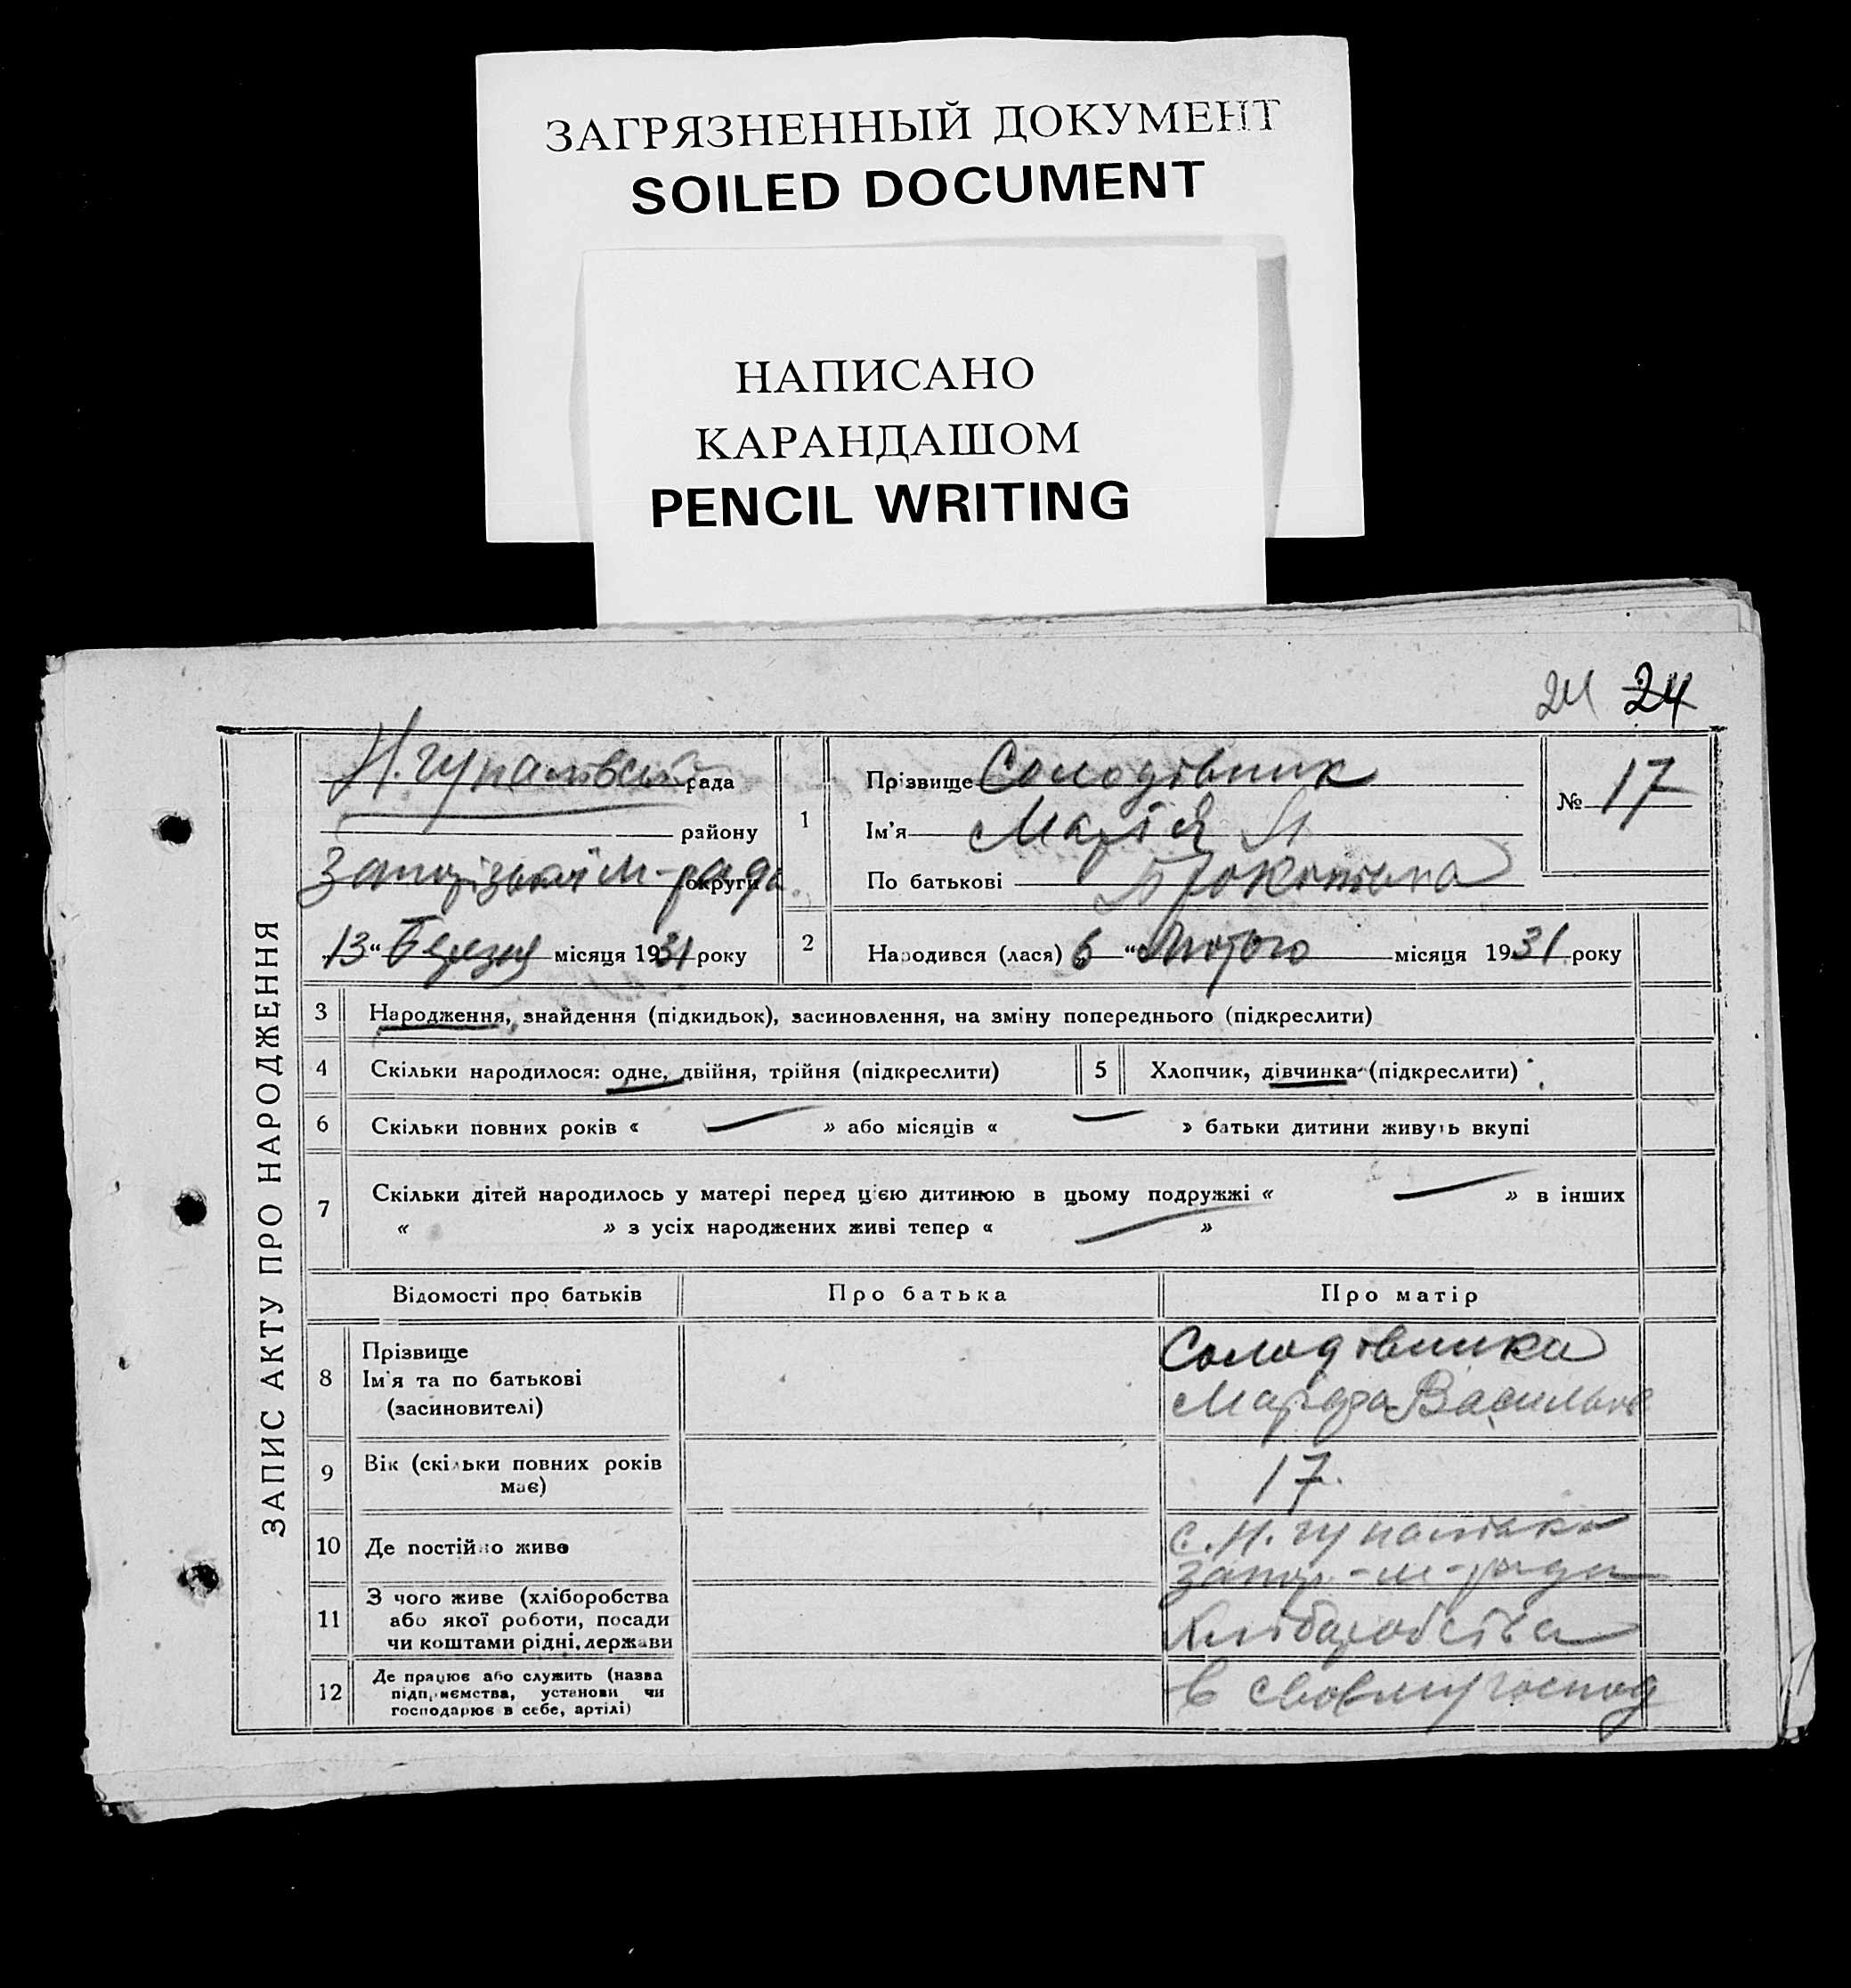 ЗАГРЯЗНЕННЫЙ ДОКУМЕНТ
SOILED DOCUMENT
НАПИСАНО
КАРАНДАШОМ
PENCIL WRITING
24 24
ЗАПИС АКТУ ПРО НАРОДЖЕННЯ
Н. Гупалівська рада
району
Запорізької м-ради округи
„13“ Березня місяця 1931 року
1
Прізвище Солодівник
Ім'я Марія
По батькові Прокопівна
№ 17
2
Народився (лася) „6“ Лютого місяця 1931 року
3 Народження, знайдення (підкидьок), засиновлення, на зміну попереднього (підкреслити)
4 Скільки народилося: одне, двійня, трійня (підкреслити)
5 Хлопчик, дівчинка (підкреслити)
6 Скільки повних років « — » або місяців « — » батьки дитини живуть вкупі
7 Скільки дітей народилось у матері перед цією дитиною в цьому подружжі « — » в інших
« » з усіх народжених живі тепер « — »
Відомості про батьків
Про батька
Про матір
8 Прізвище
Ім'я та по батькові
(засиновителі)
Солодівника
Василівн
9 Вік (скільки повних років
має)
17
10 Де постійно живе
с. Н. Гупалівка
Запор-м-ради
11 З чого живе (хліборобства
або якої роботи, посади
чи коштами рідні, держави
Хліборобства
12 Де працює або служить (назва
підприємства, установи чи
господарює в себе, артілі)
в своєму господ